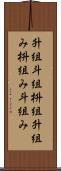 升組斗組枡組升組
み枡組み斗組み